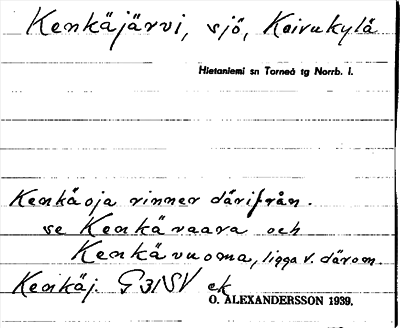 Kenkäjärvi, sjö, Koivukylä
Hietaniemi sn Torneå tg Norrb. l.
Kenkäoja rinner därifrån.
se Kenkävaara och
Kenkävuoma, ligga v. därom.
Kenkäj. G31SV ek
O. ALEXANDERSSON 1939.